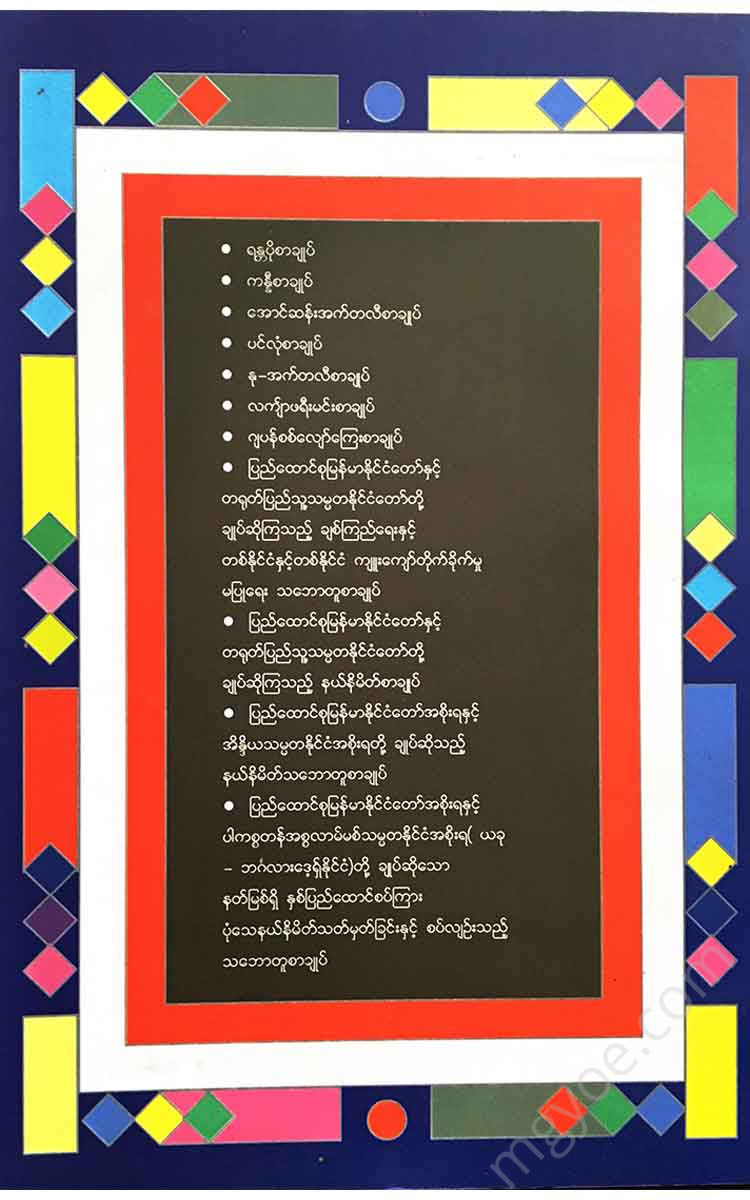 ● ရန္တပိုစာချုပ်
● ကန္နီစာချုပ်
● အောင်ဆန်းအက်တလီစာချုပ်
● ပင်လုံစာချုပ်
● နု–အက်တလီစာချုပ်
● လက်ျာဖရီးမင်းစာချုပ်
● ဂျပန်စစ်လျော်ကြေးစာချုပ်
● ပြည်ထောင်စုမြန်မာနိုင်ငံတော်နှင့်
တရုတ်ပြည်သူ့သမ္မတနိုင်ငံတော်တို့
ချုပ်ဆိုကြသည့် ချစ်ကြည်ရေးနှင့်
တစ်နိုင်ငံနှင့်တစ်နိုင်ငံ ကျူးကျော်တိုက်ခိုက်မှု
မပြုရေး သဘောတူစာချုပ်
● ပြည်ထောင်စုမြန်မာနိုင်ငံတော်နှင့်
တရုတ်ပြည်သူ့သမ္မတနိုင်ငံတော်တို့
ချုပ်ဆိုကြသည့် နယ်နိမိတ်စာချုပ်
● ပြည်ထောင်စုမြန်မာနိုင်ငံတော်အစိုးရနှင့်
အိန္ဒိယသမ္မတနိုင်ငံအစိုးရတို့ ချုပ်ဆိုသည့်
နယ်နိမိတ်သဘောတူစာချုပ်
● ပြည်ထောင်စုမြန်မာနိုင်ငံတော်အစိုးရနှင့်
ပါကစ္စတန်အစ္စလာမ်မစ်သမ္မတနိုင်ငံအစိုးရ( ယခု
– ဘင်္ဂလားဒေ့ရှ်နိုင်ငံ)တို့ ချုပ်ဆိုသော
နတ်မြစ်ရှိ နှစ်ပြည်ထောင်စပ်ကြား
ပုံသေနယ်နိမိတ်သတ်မှတ်ခြင်းနှင့် စပ်လျဉ်းသည့်
သဘောတူစာချုပ်
mgyoe.com